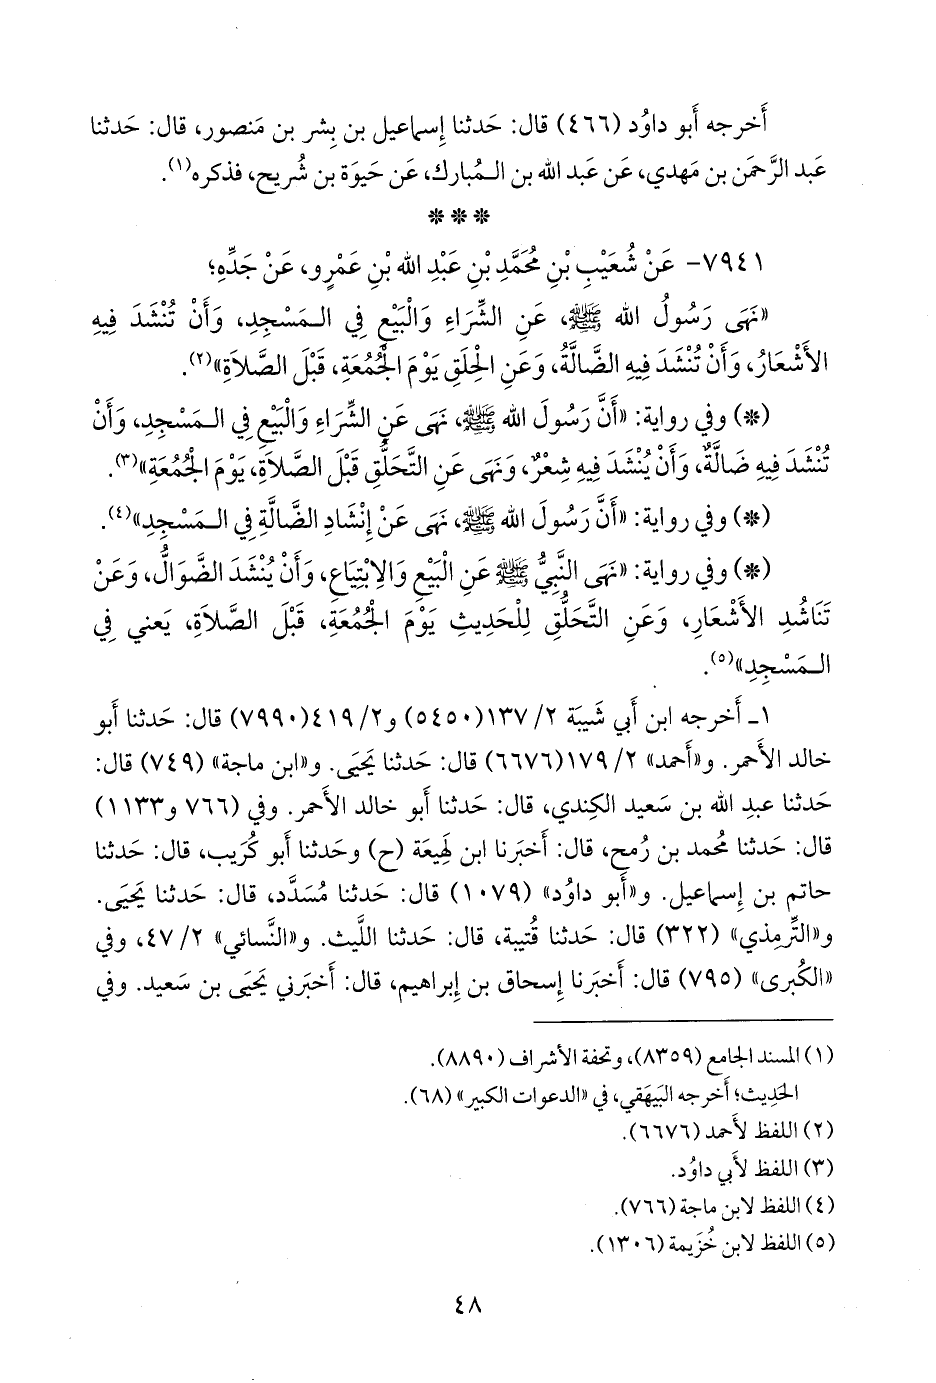 أَخرجه أَبو داوُد (٤٦٦) قال: حَدثنا إِسماعيل بن بِشر بن مَنصور، قال: حَدثنا
عَبد الرَّحمَن بن مَهدي، عَن عَبد الله بن الـمُبارك، عَن حَيوَة بن شُريح، فذكره(١).
* * *
٧٩٤١- عَنْ شُعَيْبِ بْنِ مُحَمَّدِ بْنِ عَبْدِ الله بْنِ عَمْرٍو، عَنْ جَدِّهِ؛
«نَهَى رَسُولُ الله ﷺ، عَنِ الشِّرَاءِ وَالْبَيْعِ فِي الـمَسْجِدِ، وَأَنْ تُنْشَدَ فِيهِ
الأَشْعَارُ، وَأَنْ تُنْشَدَ فِيهِ الضَّالَّةُ، وَعَنِ الْحِلَقِ يَوْمَ الْجُمُعَةِ، قَبْلَ الصَّلاَةِ»(٢).
(*) وفي رواية: «أَنَّ رَسُولَ الله ﷺ، نَهَى عَنِ الشِّرَاءِ وَالْبَيْعِ فِي الـمَسْجِدِ، وَأَنْ
تُنْشَدَ فِيهِ ضَالَّةٌ، وَأَنْ يُنْشَدَ فِيهِ شِعْرٌ، وَنَهَى عَنِ التَّحَلُّقِ قَبْلَ الصَّلاَةِ، يَوْمَ الْجُمُعَةِ»(٣).
(*) وفي رواية: «أَنَّ رَسُولَ الله ﷺ، نَهَى عَنْ إِنْشَادِ الضَّالَّةِ فِي الـمَسْجِدِ»(٤).
(*) وفي رواية: «نَهَى النَّبِيُّ ﷺ عَنِ الْبَيْعِ وَالِابْتِيَاعِ، وَأَنْ يُنْشَدَ الضَّوَالُّ، وَعَنْ
تَنَاشُدِ الأَشْعَارِ، وَعَنِ التَّحَلُّقِ لِلْحَدِيثِ يَوْمَ الْجُمُعَةِ، قَبْلَ الصَّلاَةِ، يَعني فِي
الـمَسْجِدِ»(٥).
١- أَخرجه ابن أَبي شَيبَة ٢/ ١٣٧(٥٤٥٠) و٢/ ٤١٩(٧٩٩٠) قال: حَدثنا أَبو
خالد الأَحمر. و«أَحمد» ٢/ ١٧٩(٦٦٧٦) قال: حَدثنا يَحيَى. و«ابن ماجة» (٧٤٩) قال:
حَدثنا عبدِ الله بن سَعيد الكِندي، قال: حَدثنا أَبو خالد الأَحمر. وفي (٧٦٦ و١١٣٣)
قال: حَدثنا مُحمد بن رُمح، قال: أَخبَرنا ابن لَهِيعَة (ح) وحَدثنا أَبو كُرَيب، قال: حَدثنا
حاتم بن إِسماعيل. و«أَبو داوُد» (١٠٧٩) قال: حَدثنا مُسَدَّد، قال: حَدثنا يَحيَى.
و«التِّرمِذي» (٣٢٢) قال: حَدثنا قُتيبة، قال: حَدثنا اللَّيث. و«النَّسائي» ٢/ ٤٧، وفي
«الكُبرى» (٧٩٥) قال: أَخبَرنا إِسحاق بن إِبراهيم، قال: أَخبَرني يَحيَى بن سَعيد. وفي
(١) المسند الجامع (٨٣٥٩)، وتحفة الأشراف (٨٨٩٠).
الحَدِيث؛ أَخرجه البَيهَقي، في «الدعوات الكبير» (٦٨).
(٢) اللفظ لأَحمد (٦٦٧٦).
(٣) اللفظ لأَبي داوُد.
(٤) اللفظ لابن ماجة (٧٦٦).
(٥) اللفظ لابن خُزَيمة (١٣٠٦).
٤٨